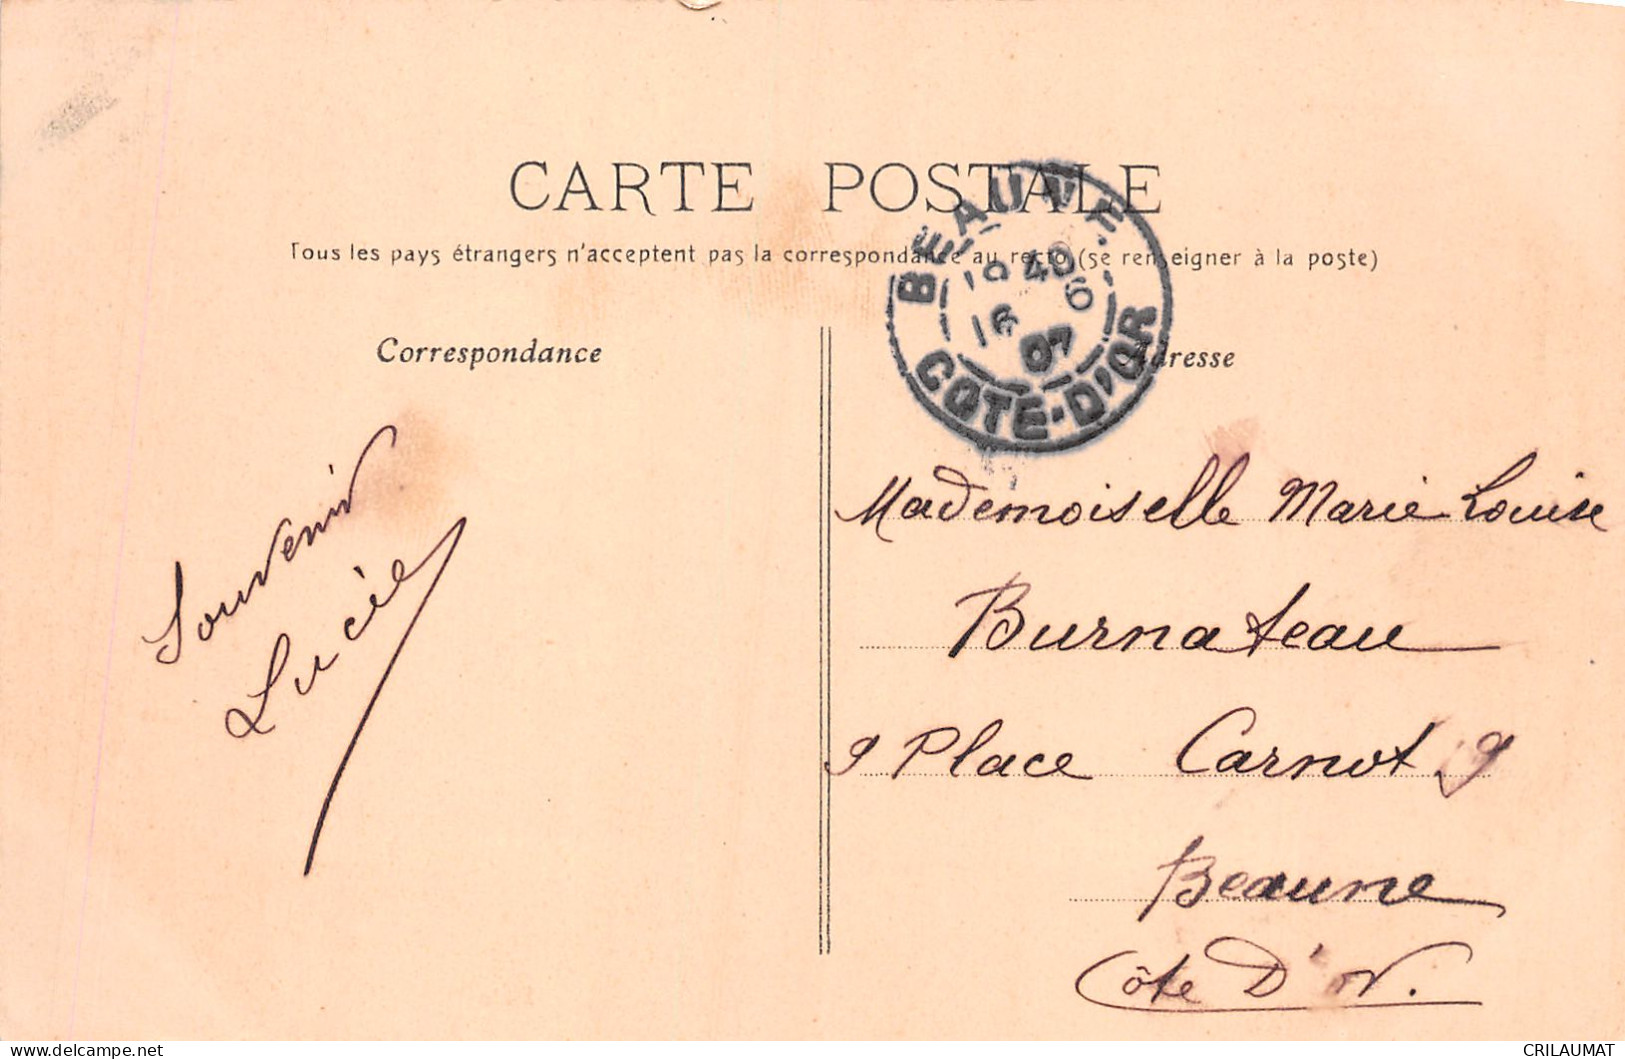 CARTE POSTALE
Tous les pays étrangers n'acceptent pas la correspondance au recto (se renseigner à la poste)
Correspondance
Adresse
BEAUNE
40
16 6
07
COTE-D'OR
Souvenir
Lucie
Mademoiselle Marie Louise
Burnateau
9 Place Carnot 9
Beaune
Côte D'Or.
delcampe.net
CRILAUMAT